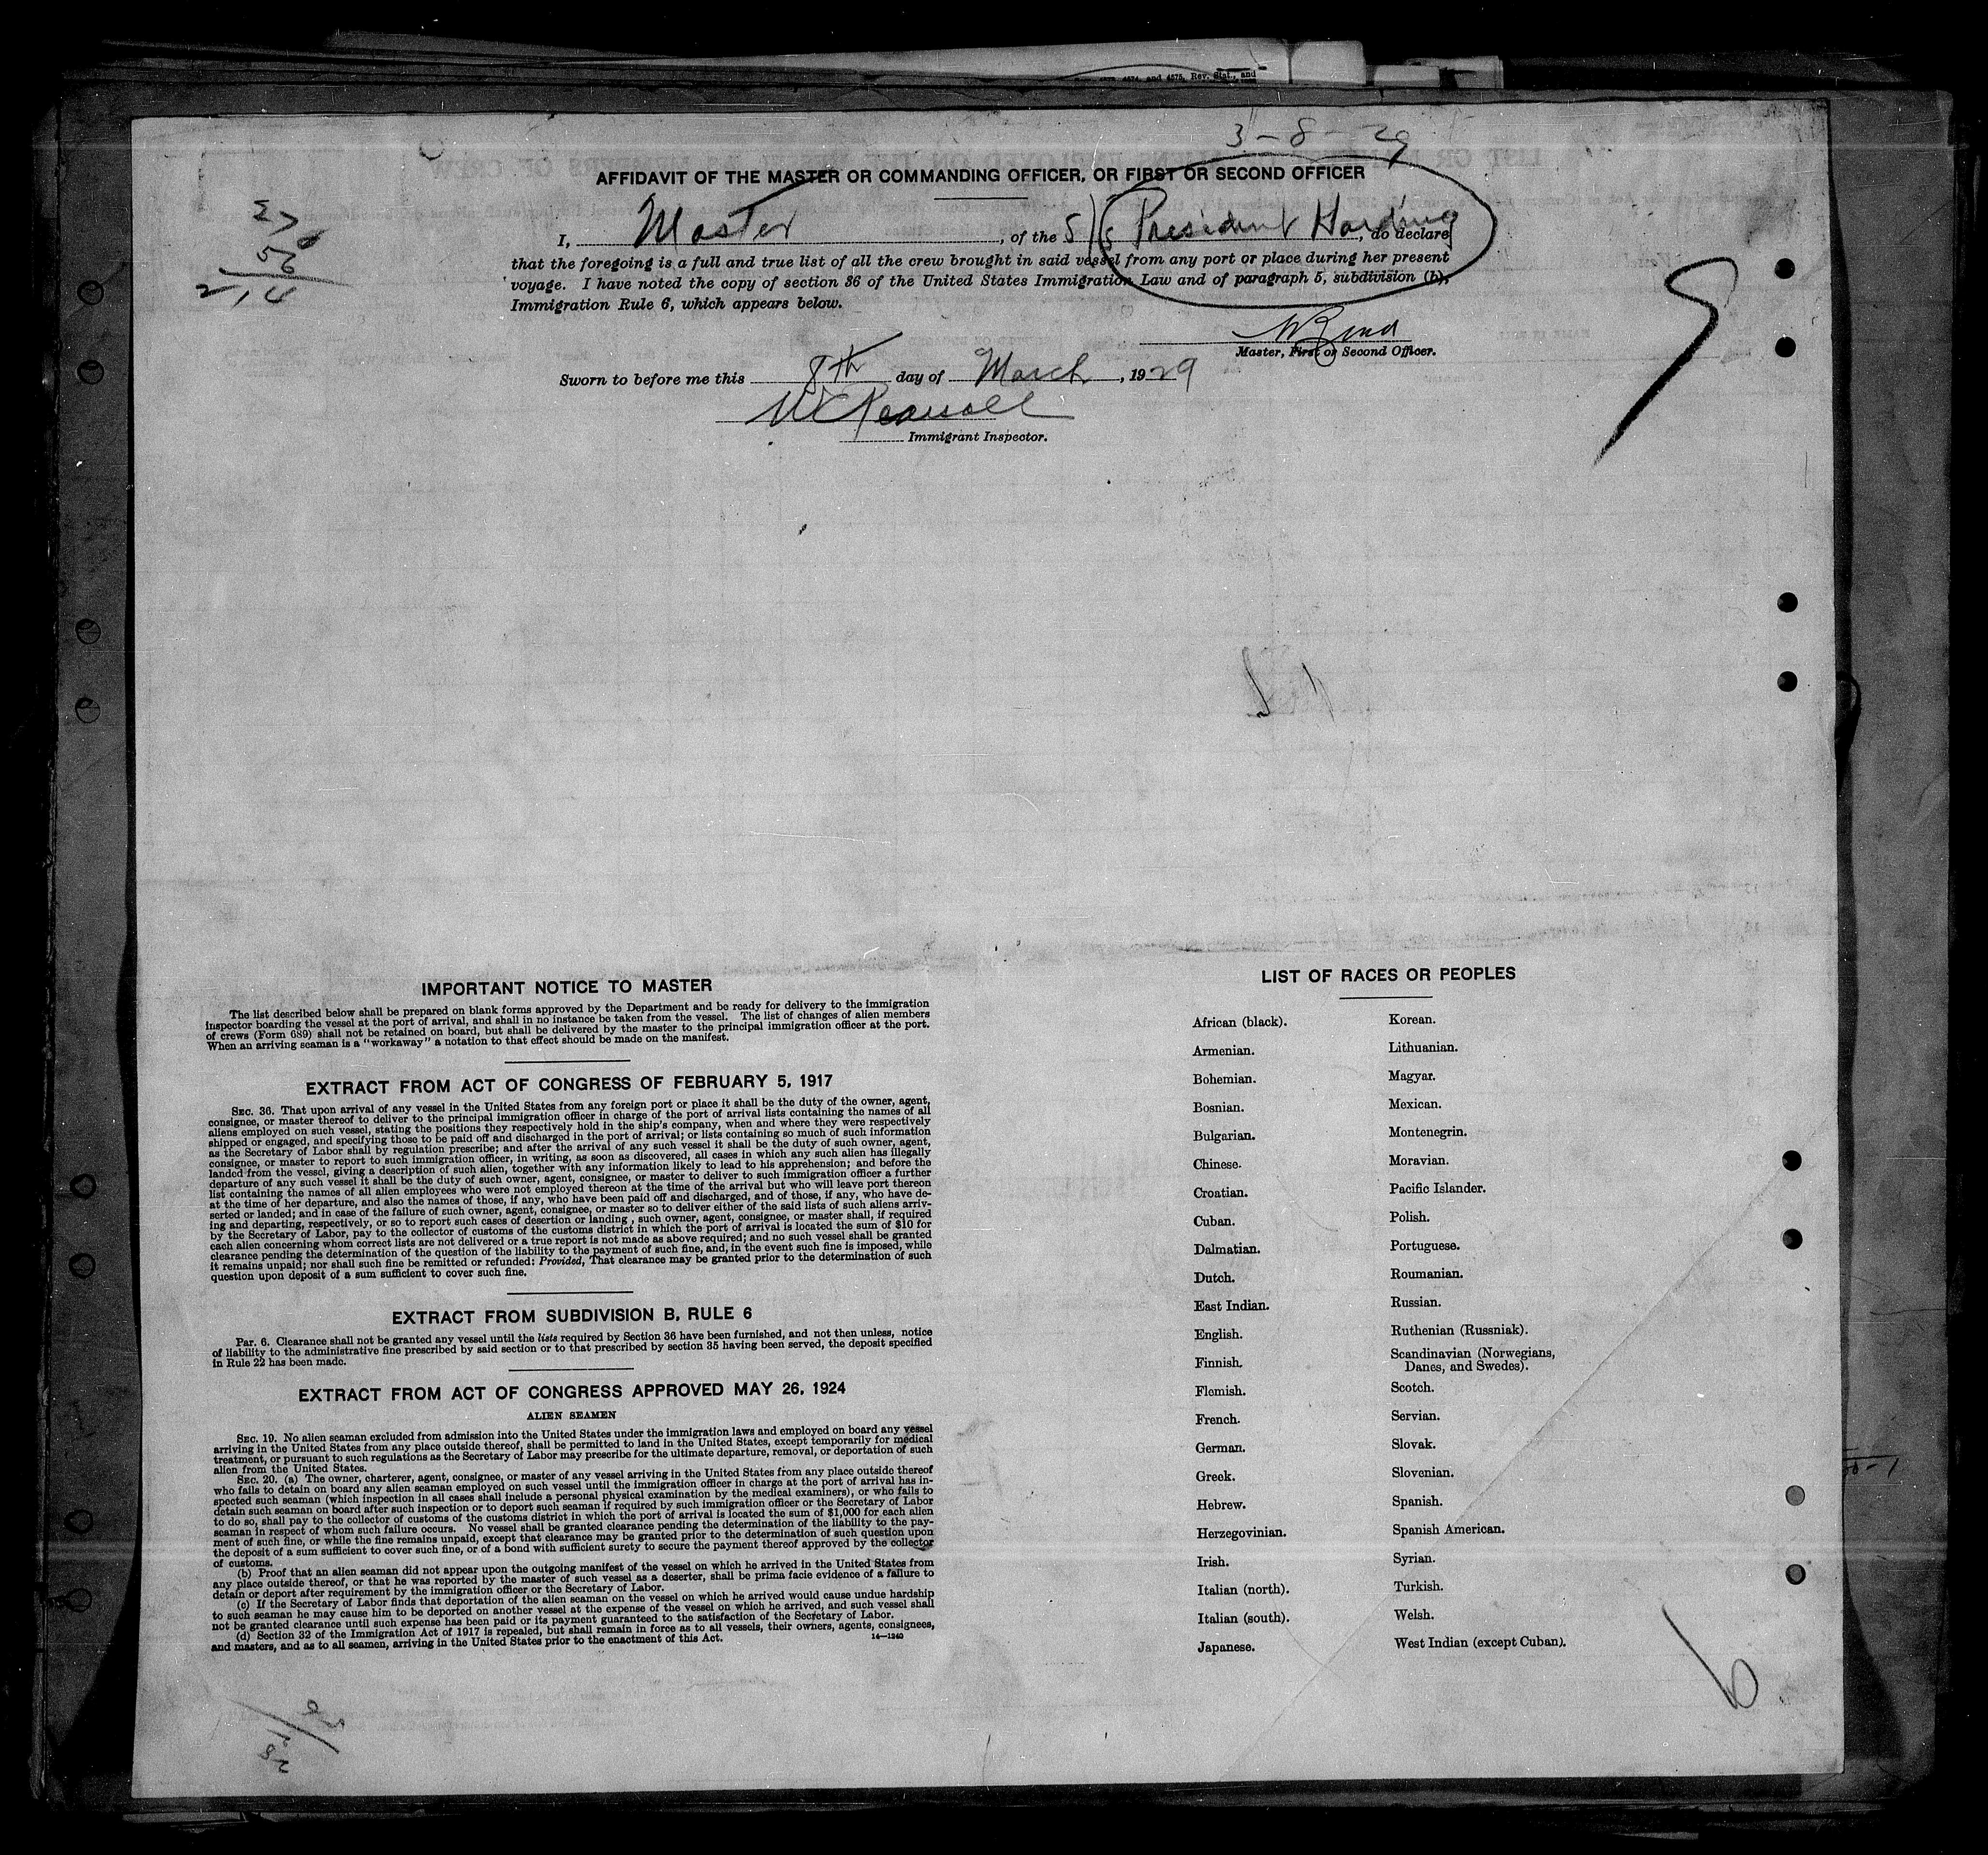 4574, and 4575, Rev. Stat., and
3-8-29
AFFIDAVIT OF THE MASTER OR COMMANDING OFFICER, OR FIRST OR SECOND OFFICER
I, Master, of the S/S President Harding, do declare
that the foregoing is a full and true list of all the crew brought in said vessel from any port or place during her present
voyage. I have noted the copy of section 36 of the United States Immigration Law and of paragraph 5, subdivision (b),
Immigration Rule 6, which appears below.
Master, First or Second Officer.
Sworn to before me this 8th day of March, 1929
Immigrant Inspector.
270
56
214
IMPORTANT NOTICE TO MASTER
The list described below shall be prepared on blank forms approved by the Department and be ready for delivery to the immigration
inspector boarding the vessel at the port of arrival, and shall in no instance be taken from the vessel. The list of changes of alien members
of crews (Form 689) shall not be retained on board, but shall be delivered by the master to the principal immigration officer at the port.
When an arriving seaman is a "workaway" a notation to that effect should be made on the manifest.
EXTRACT FROM ACT OF CONGRESS OF FEBRUARY 5, 1917
SEC. 36. That upon arrival of any vessel in the United States from any foreign port or place it shall be the duty of the owner, agent,
consignee, or master thereof to deliver to the principal immigration officer in charge of the port of arrival lists containing the names of all
aliens employed on such vessel, stating the positions they respectively hold in the ship's company, when and where they were respectively
shipped or engaged, and specifying those to be paid off and discharged in the port of arrival; or lists containing so much of such information
as the Secretary of Labor shall by regulation prescribe; and after the arrival of any such vessel it shall be the duty of such owner, agent,
consignee, or master to report to such immigration officer, in writing, as soon as discovered, all cases in which any such alien has illegally
landed from the vessel, giving a description of such alien, together with any information likely to lead to his apprehension; and before the
departure of any such vessel it shall be the duty of such owner, agent, consignee, or master to deliver to such immigration officer a further
list containing the names of all alien employees who were not employed thereon at the time of the arrival but who will leave port thereon
at the time of her departure, and also the names of those, if any, who have been paid off and discharged, and of those, if any, who have de-
serted or landed; and in case of the failure of such owner, agent, consignee, or master so to deliver either of the said lists of such aliens arriv-
ing and departing, respectively, or so to report such cases of desertion or landing , such owner, agent, consignee, or master shall, if required
by the Secretary of Labor, pay to the collector of customs of the customs district in which the port of arrival is located the sum of $10 for
each alien concerning whom correct lists are not delivered or a true report is not made as above required; and no such vessel shall be granted
clearance pending the determination of the question of the liability to the payment of such fine, and, in the event such fine is imposed, while
it remains unpaid; nor shall such fine be remitted or refunded: Provided, That clearance may be granted prior to the determination of such
question upon deposit of a sum sufficient to cover such fine.
EXTRACT FROM SUBDIVISION B, RULE 6
Par. 6. Clearance shall not be granted any vessel until the lists required by Section 36 have been furnished, and not then unless, notice
of liability to the administrative fine prescribed by said section or to that prescribed by section 35 having been served, the deposit specified
in Rule 22 has been made.
EXTRACT FROM ACT OF CONGRESS APPROVED MAY 26, 1924
ALIEN SEAMEN
SEC. 19. No alien seaman excluded from admission into the United States under the immigration laws and employed on board any vessel
arriving in the United States from any place outside thereof, shall be permitted to land in the United States, except temporarily for medical
treatment, or pursuant to such regulations as the Secretary of Labor may prescribe for the ultimate departure, removal, or deportation of such
alien from the United States.
SEC. 20. (a) The owner, charterer, agent, consignee, or master of any vessel arriving in the United States from any place outside thereof
who fails to detain on board any alien seaman employed on such vessel until the immigration officer in charge at the port of arrival has in-
spected such seaman (which inspection in all cases shall include a personal physical examination by the medical examiners), or who fails to
detain such seaman on board after such inspection or to deport such seaman if required by such immigration officer or the Secretary of Labor
to do so, shall pay to the collector of customs of the customs district in which the port of arrival is located the sum of $1,000 for each alien
seaman in respect of whom such failure occurs. No vessel shall be granted clearance pending the determination of the liability to the pay-
ment of such fine, or while the fine remains unpaid, except that clearance may be granted prior to the determination of such question upon
the deposit of a sum sufficient to cover such fine, or of a bond with sufficient surety to secure the payment thereof approved by the collector
of customs.
(b) Proof that an alien seaman did not appear upon the outgoing manifest of the vessel on which he arrived in the United States from
any place outside thereof, or that he was reported by the master of such vessel as a deserter, shall be prima facie evidence of a failure to
detain or deport after requirement by the immigration officer or the Secretary of Labor.
(c) If the Secretary of Labor finds that deportation of the alien seaman on the vessel on which he arrived would cause undue hardship
to such seaman he may cause him to be deported on another vessel at the expense of the vessel on which he arrived, and such vessel shall
not be granted clearance until such expense has been paid or its payment guaranteed to the satisfaction of the Secretary of Labor.
(d) Section 32 of the Immigration Act of 1917 is repealed, but shall remain in force as to all vessels, their owners, agents, consignees,
and masters, and as to all seamen, arriving in the United States prior to the enactment of this Act.
14—1240
LIST OF RACES OR PEOPLES
African (black).
Armenian.
Bohemian.
Bosnian.
Bulgarian.
Chinese.
Croatian.
Cuban.
Dalmatian.
Dutch.
East Indian.
English.
Finnish.
Flemish.
French.
German.
Greek.
Hebrew.
Herzegovinian.
Irish.
Italian (north).
Italian (south).
Japanese.
Korean.
Lithuanian.
Magyar.
Mexican.
Montenegrin.
Moravian.
Pacific Islander.
Polish.
Portuguese.
Roumanian.
Russian.
Ruthenian (Russniak).
Scandinavian (Norwegians,
Danes, and Swedes).
Scotch.
Servian.
Slovak.
Slovenian.
Spanish.
Spanish American.
Syrian.
Turkish.
Welsh.
West Indian (except Cuban).